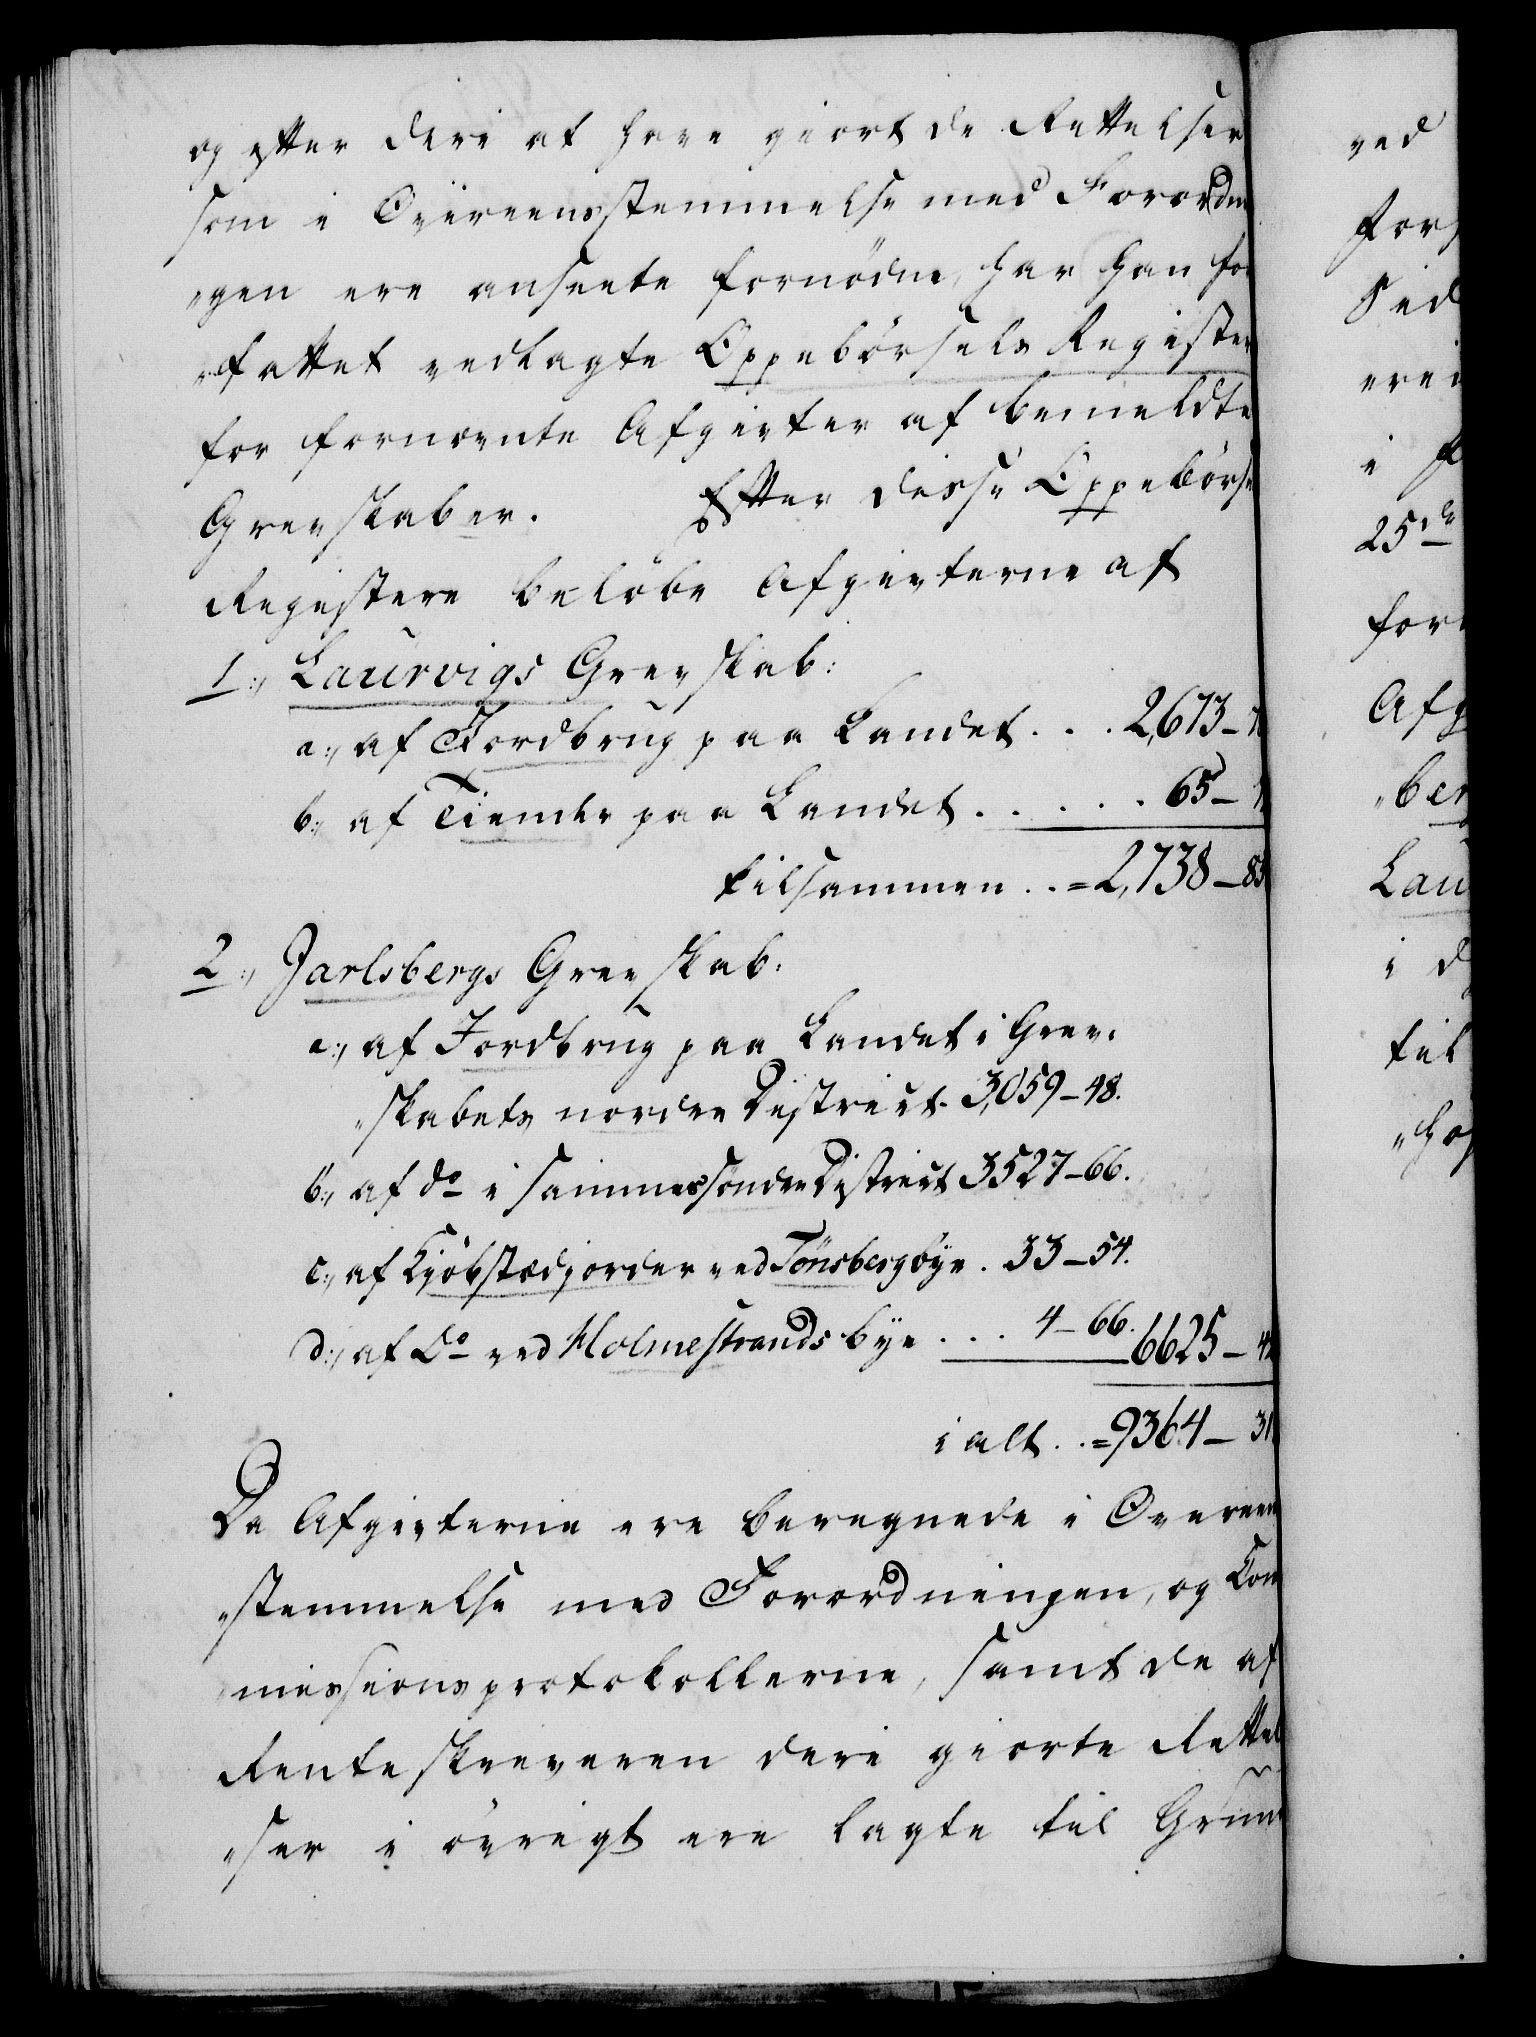 og efter deri at have giort de Rettelser
som i Overeensstemmelse med Forordn
"gen ere anseete fornødne, har han for
"fattet vedlagte Oppebørsels Register
for fornævnte Afgivter af bemeldte
Grevskaber. Efter disse Oppebørse
Registere beløbe Afgivterne af
1:, Laurvigs Grevskab:
a:, af Jordbrug paa Landet . . . 2,673 –
b:, af Tiender paa Landet . . . . . . 65 –
tilsammen . . = 2,738 – 85
2:, Jarlsbergs Grevskab.
a:, af Jordbrug paa Landet i Grev.
"skabets nordre District. 3,059 – 48.
b:, af do i sammes søndre District 3527 – 66.
c:, af Kjøbstædjorder ved Tönsberg bye . 33 – 54.
d:, af Do ved Holmestrands bye . . . 4 – 66. 6625 – 42
i alt . . = 9364 – 31
Da Afgivterne ere beregnede i Overeens
"stemmelse med Forordningen, og Kom
missionsprotokollerne, samt de af
Renteskriveren deri giorte Rettel
"ser i øvrigt ere lagte til Grun
ved
for
Sid
i
25de
for
Afg
"ber
Lau
i d
til